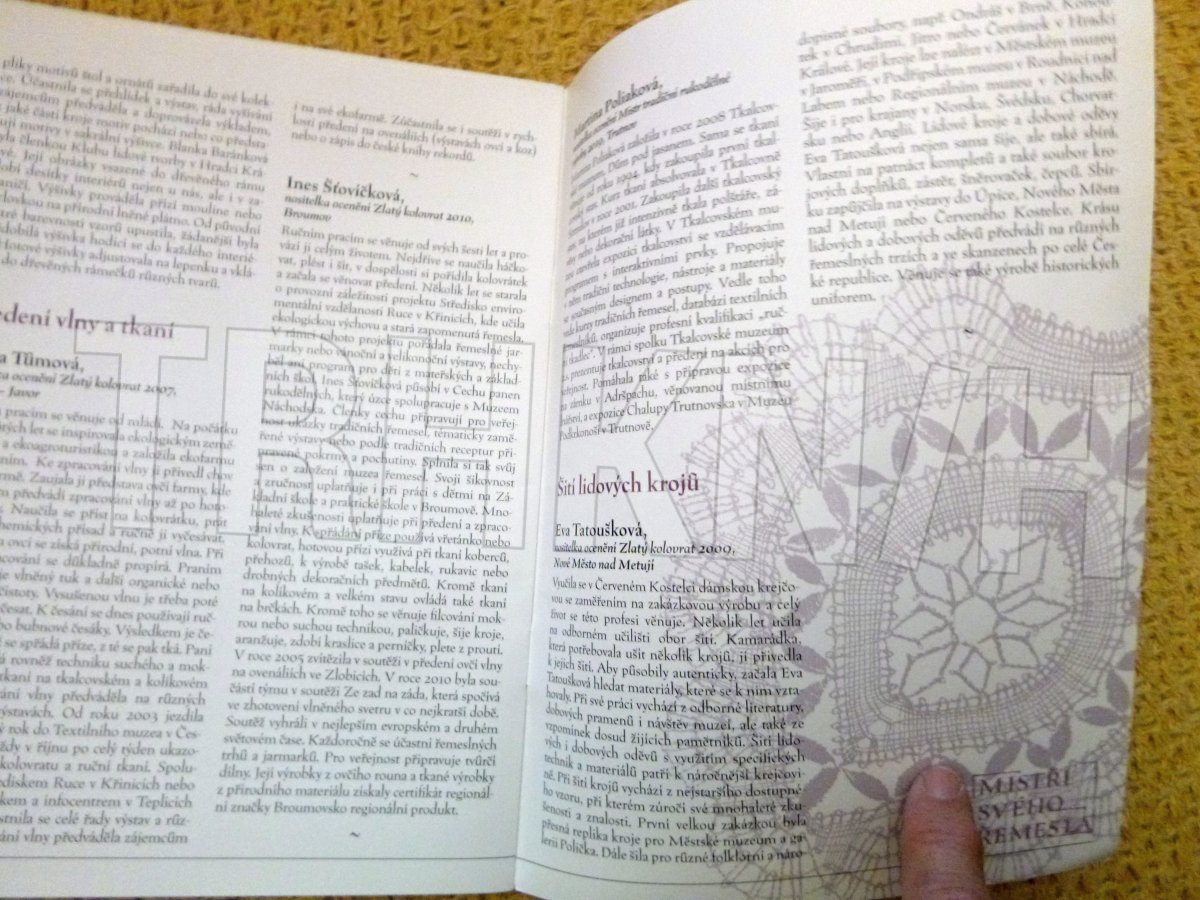 pliky motivů štol a ornátů zařadila do své kolek-
Účastnila se přehlídek a výstav, ráda vyšívání
zájemcům předváděla a doprovázela výkladem,
jaké části kroje motiv pochází nebo co předsta
motivy v sakrální výšivce. Blanka Baránková
členkou Klubu lidové tvorby v Hradci Krá-
Její obrázky vsazené do dřevěného rámu
desítky interiérů nejen u nás, ale i v za-
Výšivky prováděla přízí mouline nebo
na přírodní lněné plátno. Od původní
barevnosti vzorů upustila, žádanější byla
výšivka hodící se do každého interié-
Hotové výšivky adjustovala na lepenku a vklá-
do dřevěných rámečků různých tvarů.
vlny a tkaní
Tůmová,
ocenění Zlatý kolovrat 2007,
– Javor
pracím se věnuje od mládí. Na počátku
let se inspirovala ekologickým země-
a ekoagroturistikou a založila ekofarmu
Ke zpracování vlny ji přivedl chov
Zaujala ji představa ovčí farmy, kde
předvádí zpracování vlny až po hoto-
Naučila se příst na kolovrátku, prát
přísad a ručně ji vyčesávat.
ovcí se získá přírodní, potní vlna. Při
se důkladně propírá. Praním
vlněný tuk a další organické nebo
Vysušenou vlnu je třeba poté
K česání se dnes používají ruč-
bubnové česáky. Výsledkem je če-
se spřádá příze, z té se pak tká. Paní
rovněž techniku suchého a mok-
tkaní na tkalcovském a kolíkovém
vlny předváděla na různých
výstavách. Od roku 2003 jezdila
rok do Textilního muzea v Čes-
v říjnu po celý týden ukazo-
kolovratu a ruční tkaní. Spolu-
Ruce v Křinicích nebo
a infocentrem v Teplicích
se celé řady výstav a růz-
vlny předváděla zájemcům
i na své ekofarmě. Zúčastnila se i soutěží v rych-
losti předení na ovenáliích (výstavách ovcí a koz)
nebo o zápis do české knihy rekordů.
~
Ines Šťovíčková,
nositelka ocenění Zlatý kolovrat 2010,
Broumov
Ručním pracím se věnuje od svých šesti let a pro-
vází ji celým životem. Nejdříve se naučila háčko-
vat, plést i šít, v dospělosti si pořídila kolovrátek
a začala se věnovat předení. Několik let se starala
o provozní záležitosti projektu Středisko enviro-
mentální vzdělávání Ruce v Křinicích, kde učila
ekologickou výchovu a stará zapomenutá řemesla.
V rámci tohoto projektu pořádala řemeslné jar-
marky nebo vánoční a velikonoční výstavy, nechy-
běl ani program pro děti z mateřských a základ-
ních škol. Ines Šťovíčková působí v Cechu panen
rukodělných, který úzce spolupracuje s Muzeem
Náchodska. Členky cechu připravují pro veřej-
nost ukázky tradičních řemesel, tématicky zamě-
řené výstavy nebo podle tradičních receptur při-
pravené pokrmy a pochutiny. Splnila si tak svůj
sen o založení muzea řemesel. Svoji šikovnost
a zručnost uplatňuje i při práci s dětmi na Zá-
kladní škole a praktické škole v Broumově. Mno-
haleté zkušenosti uplatňuje při předení a zpraco-
vání vlny. K spřádání příze používá vřetánko nebo
kolovrat, hotovou přízi využívá při tkaní koberců,
přehozů, k výrobě tašek, kabelek, rukavic nebo
drobných dekoračních předmětů. Kromě tkaní
na kolíkovém a velkém stavu ovládá také tkaní
na brčkách. Kromě toho se věnuje filcování mok-
rou nebo suchou technikou, paličkuje, šije kroje,
aranžuje, zdobí kraslice a perníčky, plete z proutí.
V roce 2005 zvítězila v soutěži v předení ovčí vlny
na ovenáliích ve Zlobicích. V roce 2010 byla sou-
částí týmu v soutěži Ze zad na záda, která spočívá
ve zhotovení vlněného svetru v co nejkratší době.
Soutěž vyhráli v nejlepším evropském a druhém
světovém čase. Každoročně se účastní řemeslných
trhů a jarmarků. Pro veřejnost připravuje tvůrčí
dílny. Její výrobky z ovčího rouna a tkané výrobky
z přírodního materiálu získaly certifikát regionál-
ní značky Broumovsko regionální produkt.
~
Martina Poliaková,
ocenění Mistr tradiční rukodělné
2010, Trutnov
Poliaková založila v roce 2008 Tkalcov-
muzeum, Dům pod jasanem. Sama se tkaní
od roku 1994, kdy zakoupila první tkal-
stav. Kurz tkaní absolvovala v Tkalcovně
v roce 2001. Zakoupila další tkalcovský
na kterém již intenzivně tkala polštáře, zá-
nebo dekorační látky. V Tkalcovském mu-
otevřela expozici tkalcovství se vzdělávacím
programem s interaktivními prvky. Propojuje
v něm tradiční technologie, nástroje a materiály
se současným designem a postupy. Vedle toho
vede kurzy tradičních řemesel, databázi textilních
řemeslníků, organizuje profesní kvalifikaci „ruč-
ní tkadlec“. V rámci spolku Tkalcovské muzeum
prezentuje tkalcovství a předení na akcích pro
veřejnost. Pomáhala také s přípravou expozice
na zámku v Adršpachu, věnovanou místnímu
a expozice Chalupy Trutnovska v Muzeu
Podkrkonoší v Trutnově.
Šití lidových krojů
Eva Tatoušková,
nositelka ocenění Zlatý kolovrat 2009,
Nové Město nad Metují
Vyučila se v Červeném Kostelci dámskou krejčo-
vou se zaměřením na zakázkovou výrobu a celý
život se této profesi věnuje. Několik let učila
na odborném učilišti obor šití. Kamarádka,
která potřebovala ušít několik krojů, ji přivedla
k jejich šití. Aby působily autenticky, začala Eva
Tatoušková hledat materiály, které se k nim vzta-
hovaly. Při své práci vychází z odborné literatury,
dobových pramenů i návštěv muzeí, ale také ze
vzpomínek dosud žijících pamětníků. Šití lido-
vých i dobových oděvů s využitím specifických
technik a materiálů patří k náročnější krejčovi-
ně. Při šití krojů vychází z nejstaršího dostupné
ho vzoru, při kterém zúročí své mnohaleté zku-
šenosti a znalosti. První velkou zakázkou byla
přesná replika kroje pro Městské muzeum a ga-
lerii Polička. Dále šila pro různé folklorní a náro-
dopisné soubory, např. Ondráš v Brně, Kohou-
tek v Chrudimi, Jitro nebo Červánek v Hradci
Králové. Její kroje lze nalézt v Městském muzeu
v Jaroměři, v Podřipském muzeu v Roudnici nad
Labem nebo Regionálním muzeu v Náchodě.
Šije i pro krajany v Norsku, Švédsku, Chorvat-
sku nebo Anglii. Lidové kroje a dobové oděvy
Eva Tatoušková nejen sama šije, ale také sbírá.
Vlastní na patnáct kompletů a také soubor kro-
jových doplňků, zástěr, šněrovaček, čepců. Sbír-
ku zapůjčila na výstavy do Úpice, Nového Města
nad Metují nebo Červeného Kostelce. Krásu
lidových a dobových oděvů předvádí na různých
řemeslných trzích a ve skanzenech po celé Čes-
ké republice. Věnuje se také výrobě historických
uniforem.
~
MISTŘI
SVÉHO
ŘEMESLA